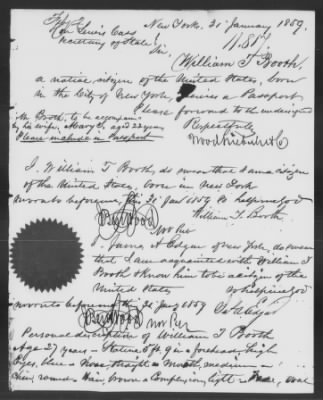 New York. 21 January 1859.
Hon Lewis Cass
Secretary of State
Sir,
William T Booth,
a native citizen of the United States, born
in the City of New York, desires a Passport
Please forward to the undersigned
Mr. Booth, to be accompanied
by his wife, Mary E, aged 22 years
Please include in Passport
Respectfully
I, William T Booth, do swear that I am a citizen
of the United States, born in New York
Sworn to before me, this 21 Jany 1859 So help me God
William T. Booth
I James A Edgar of New York, do swear
that I am acquainted with William T
Booth & know him to be a citizen of the
United States So help me God
Sworn to before me this 21 Jany 1859 Ja A Edgar
Personal description of William T Booth
Age 27 years - Stature 5 ft 9 in forehead, high
Eyes, blue - Nose, straight - Mouth, medium -
Chin, round - Hair, brown - Complexion, light - Face, oval